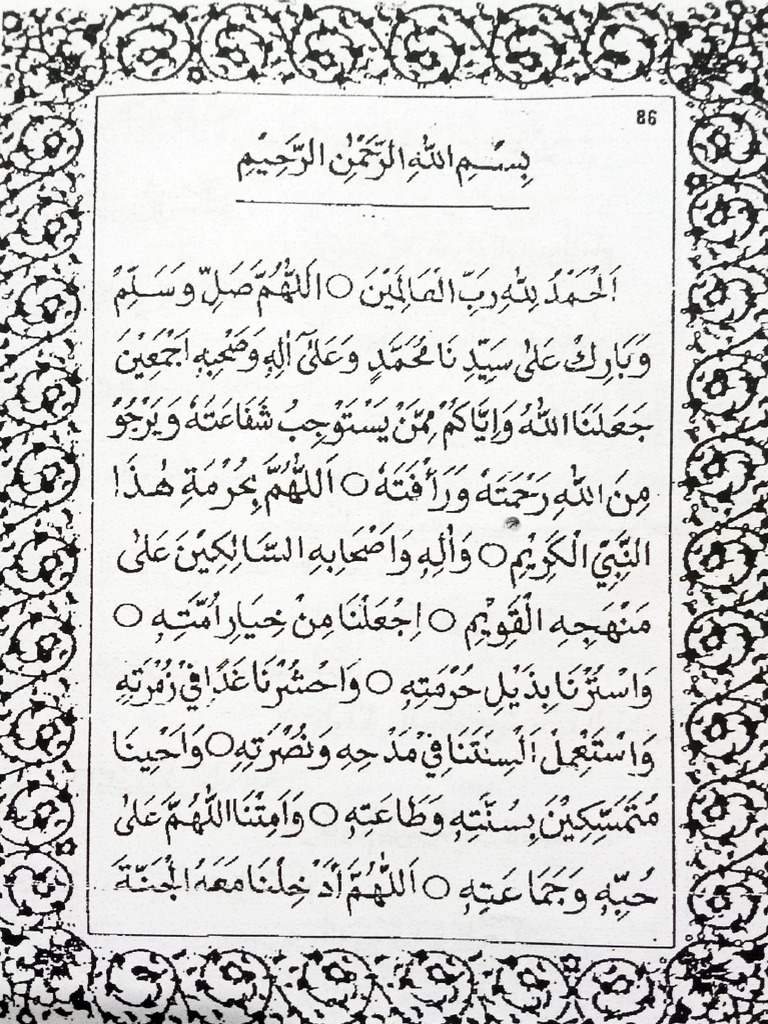 86
بِسْمِ اللهِ الرَّحْمٰنِ الرَّحِيْمِ
اَلْحَمْدُ لِلّٰهِ رَبِّ الْعَالَمِيْنَ ○ اَللّٰهُمَّ صَلِّ وَسَلِّمْ
وَبَارِكْ عَلىٰ سَيِّدِنَا مُحَمَّدٍ وَعَلىٰٓ اٰلِهٖ وَصَحْبِهٖ اَجْمَعِيْنَ
جَعَلَنَا اللهُ وَاِيَّاكُمْ مِمَّنْ يَسْتَوْجِبُ شَفَاعَتَهٗ وَيَرْجُوْ
مِنَ اللهِ رَحْمَتَهٗ وَرَأْفَتَهٗ ○ اَللّٰهُمَّ بِحُرْمَةِ هٰذَا
النَّبِيِّ الْكَرِيْمِ ○ وَاٰلِهٖ وَاَصْحَابِهِ السَّالِكِيْنَ عَلىٰ
مَنْهَجِهِ الْقَوِيْمِ ○ اِجْعَلْنَا مِنْ خِيَارِ اُمَّتِهٖ ○
وَاسْتُرْنَا بِذَيْلِ حُرْمَتِهٖ ○ وَاحْشُرْنَا غَدًا فِيْ زُمْرَتِهٖ
وَاسْتَعْمِلْ اَلْسِنَتَنَا فِيْ مَدْحِهٖ وَنُصْرَتِهٖ ○ وَاَحْيِنَا
مُتَمَسِّكِيْنَ بِسُنَّتِهٖ وَطَاعَتِهٖ ○ وَاَمِتْنَا اللّٰهُمَّ عَلىٰ
حُبِّهٖ وَجَمَاعَتِهٖ ○ اَللّٰهُمَّ أَدْخِلْنَا مَعَهُ الْجَنَّةَ